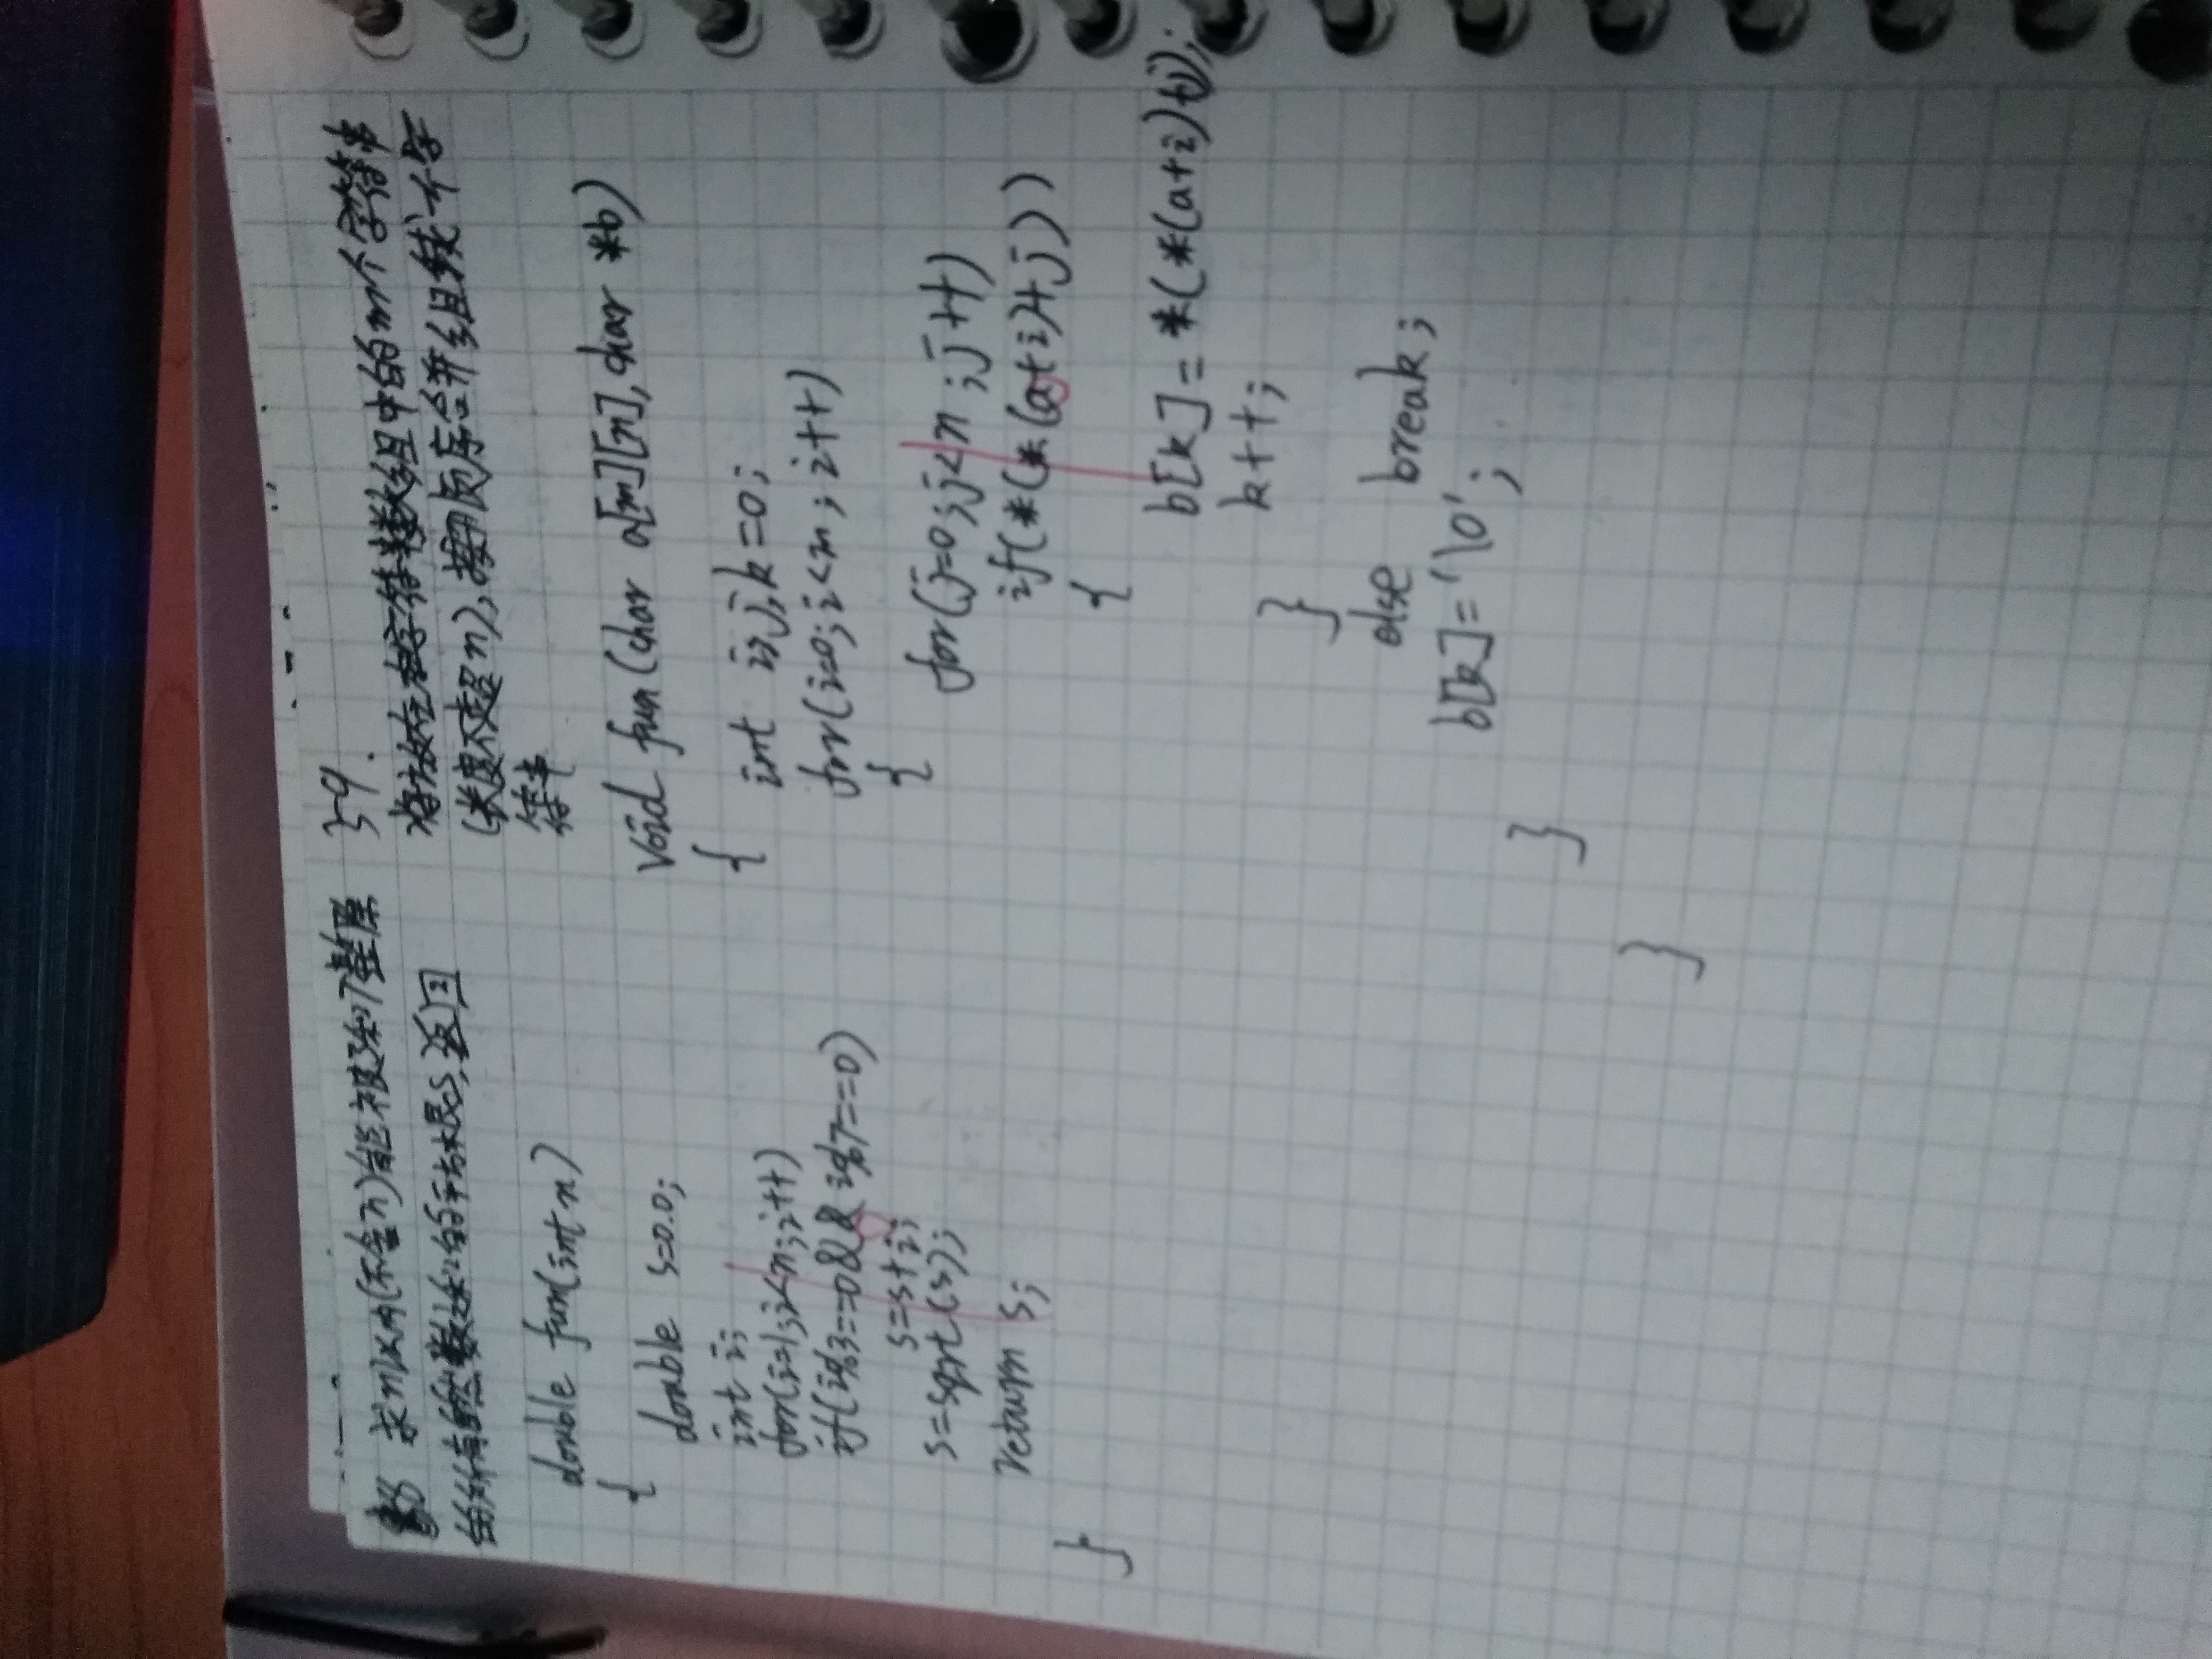 求n以内(不含n)能被3和7整除
的所有自然数之和的平方根s,返回
double fun(int n)
{
double s=0.0;
int i;
for(i=1;i<n;i++)
if(i%3==0&&i%7==0)
s=s+i;
s=sqrt(s);
return s;
}
59.
将放在字符串数组中的m个字符串
(长度不超n),按顺序合并组成一个字
符串
void fun(char a[m][n],char *b)
{
int i,j,k=0;
for(i=0;i<m;i++)
{
for(j=0;j<n;j++)
if(*(*(a+i)+j))
{
b[k]=*(*(a+i)+j);
k++;
}
else break;
b[k]='\0';
}
}